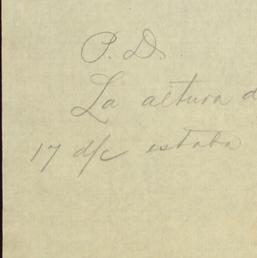 P. D.
La altura d
17 d/c estaba